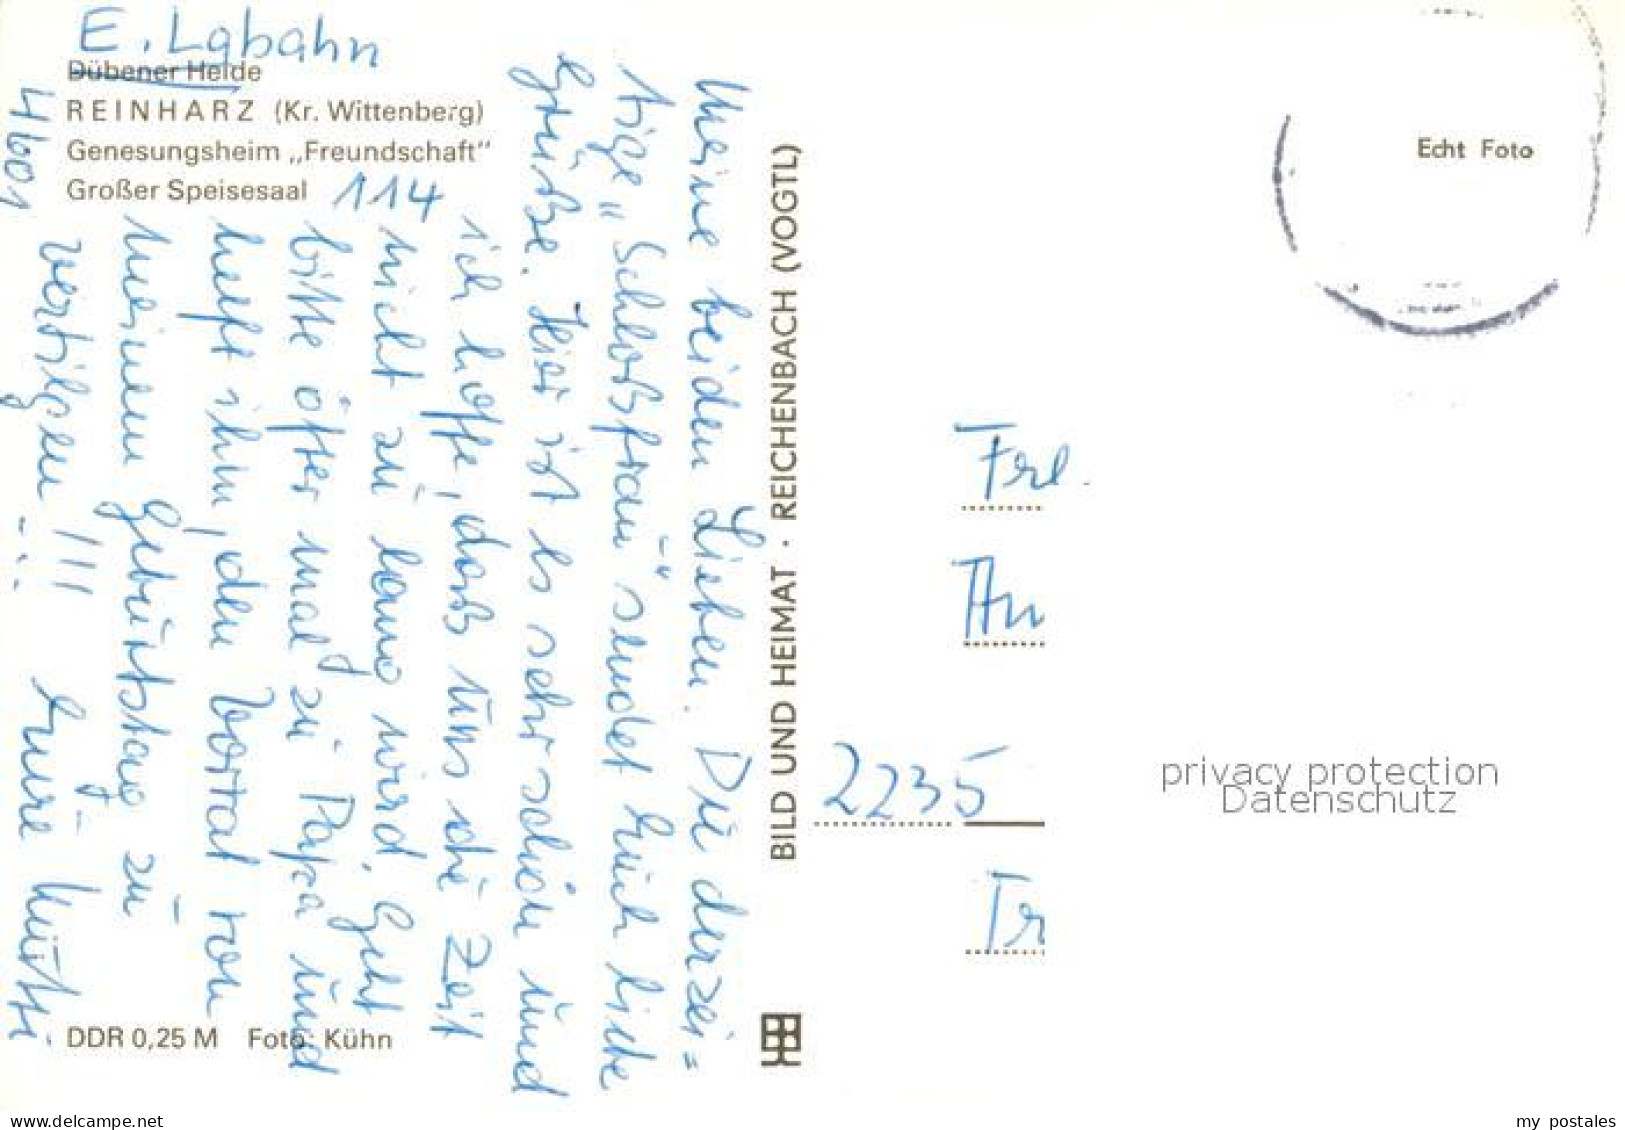 E. Lgbahn
Dübener Heide
REINHARZ (Kr. Wittenberg)
Genesungsheim „Freundschaft"
Großer Speisesaal
114
4601
Meine beiden Lieben. Die derzei=
tige „Schloßfrau" sendet Euch liebe
Grüße. Hier ist es sehr schön und
ich hoffe, daß uns die Zeit
nicht zu lang wird. Geht
bitte öfter mal zu Papa und
helft ihm, den Vorrat von
meinem Geburtstag zu
vertilgen !!! Eure Mutti
DDR 0,25 M Foto: Kühn
BILD UND HEIMAT · REICHENBACH (VOGTL)
Echt Foto
Frl.
An
2235
Tr
privacy protection
Datenschutz
delcampe.net
my_postales